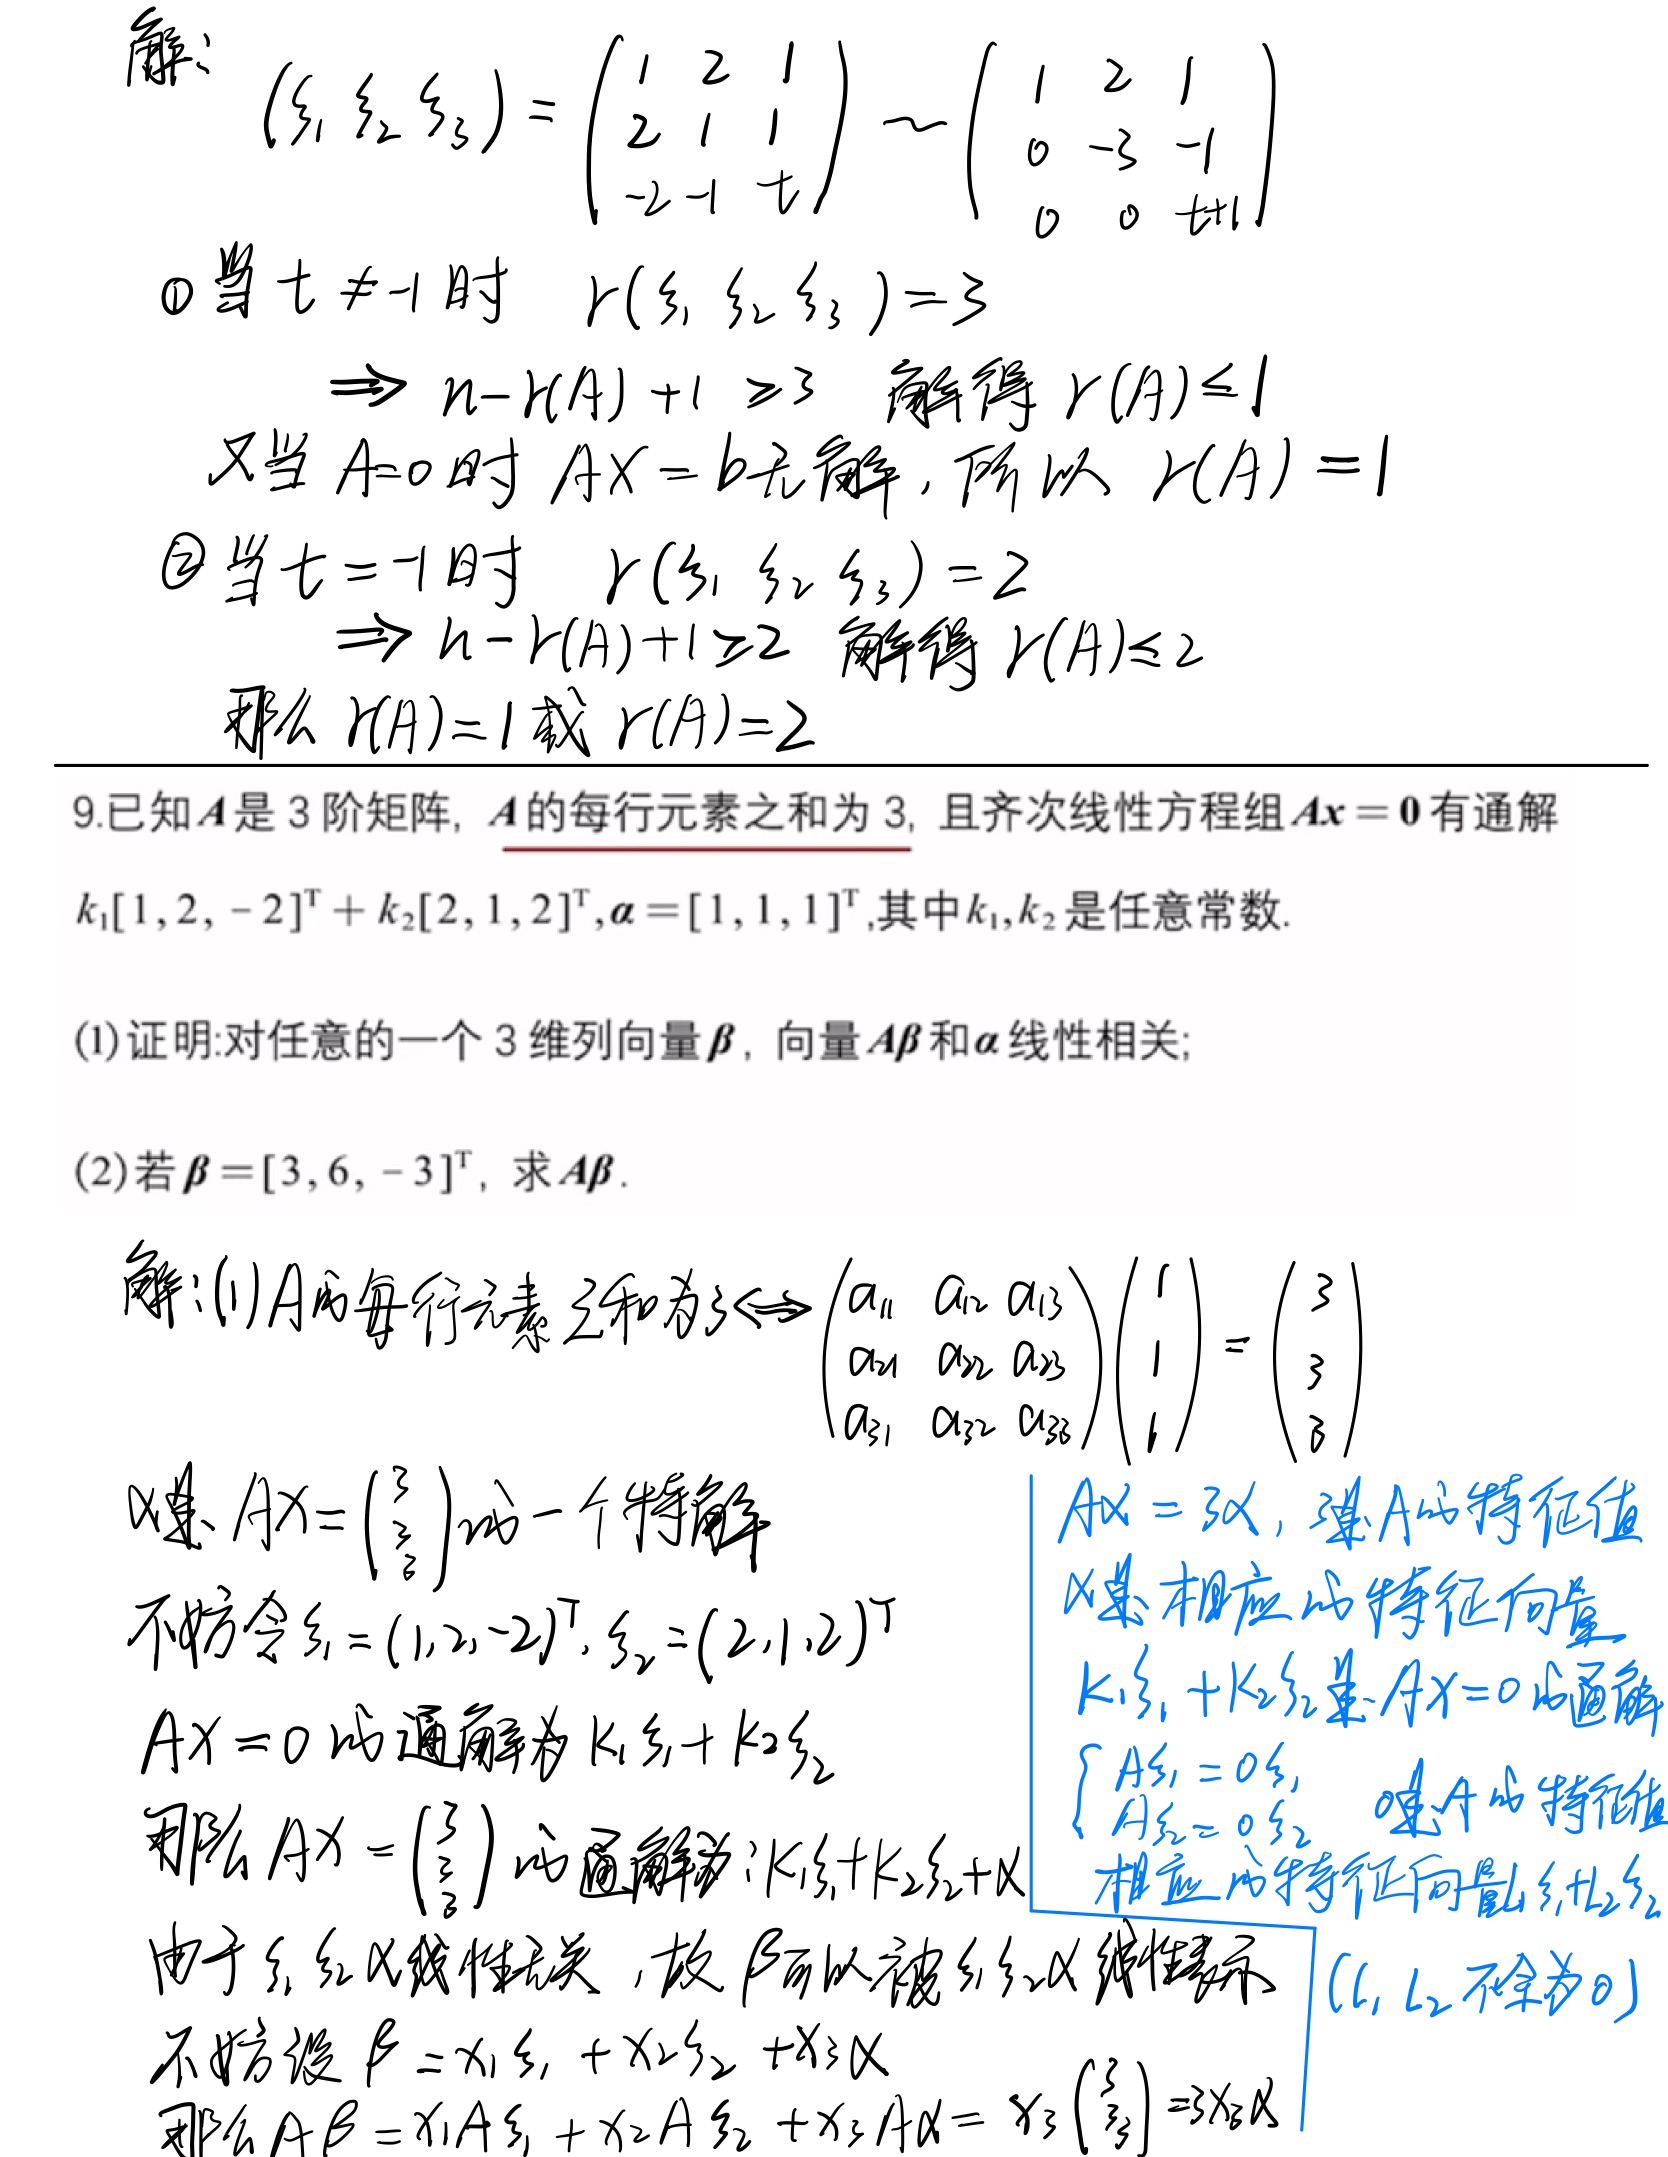 解:
(ξ₁ ξ₂ ξ₃) = (1 2 1; 2 1 1; -2 -1 t) ~ (1 2 1; 0 -3 -1; 0 0 t+1)
①当 t ≠ -1 时 r(ξ₁ ξ₂ ξ₃) = 3
⇒ n - r(A) + 1 ≥ 3 解得 r(A) ≤ 1
又当 A=0 时 AX = b无解, 所以 r(A) = 1
②当 t = -1 时 r(ξ₁ ξ₂ ξ₃) = 2
⇒ n - r(A) + 1 ≥ 2 解得 r(A) ≤ 2
那么 r(A) = 1 或 r(A) = 2
9.已知A是 3 阶矩阵, A的每行元素之和为 3, 且齐次线性方程组Ax = 0 有通解
k₁[1, 2, -2]ᵀ + k₂[2, 1, 2]ᵀ, α = [1, 1, 1]ᵀ,其中k₁, k₂ 是任意常数.
(1)证明:对任意的一个 3 维列向量β, 向量Aβ和α线性相关;
(2)若β = [3, 6, -3]ᵀ, 求Aβ.
解:(1)A的每行元素之和为3⇔(a₁₁ a₁₂ a₁₃; a₂₁ a₂₂ a₂₃; a₃₁ a₃₂ a₃₃)(1; 1; 1) = (3; 3; 3)
α是 AX = (3; 3; 3)的一个特解
不妨令ξ₁ = (1,2,-2)ᵀ, ξ₂ = (2,1,2)ᵀ
AX = 0 的通解为 k₁ξ₁ + k₂ξ₂
那么 AX = (3; 3; 3) 的通解为: k₁ξ₁+k₂ξ₂+α
由于 ξ₁ ξ₂ α线性无关, 故 β可以被ξ₁ξ₂α 线性表示
不妨设 β = x₁ξ₁ + x₂ξ₂ + x₃α
那么Aβ = x₁Aξ₁ + x₂Aξ₂ + x₃Aα = x₃(3; 3; 3) = 3x₃α
Aα = 3α, 3是A的特征值
α是相应的特征向量
k₁ξ₁ + k₂ξ₂是AX=0的通解
{Aξ₁ = 0ξ₁
Aξ₂ = 0ξ₂ 0是A的特征值
相应的特征向量L₁ξ₁+L₂ξ₂
(L₁ L₂ 不全为0)